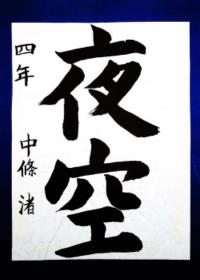 夜空
四年
中條 渚